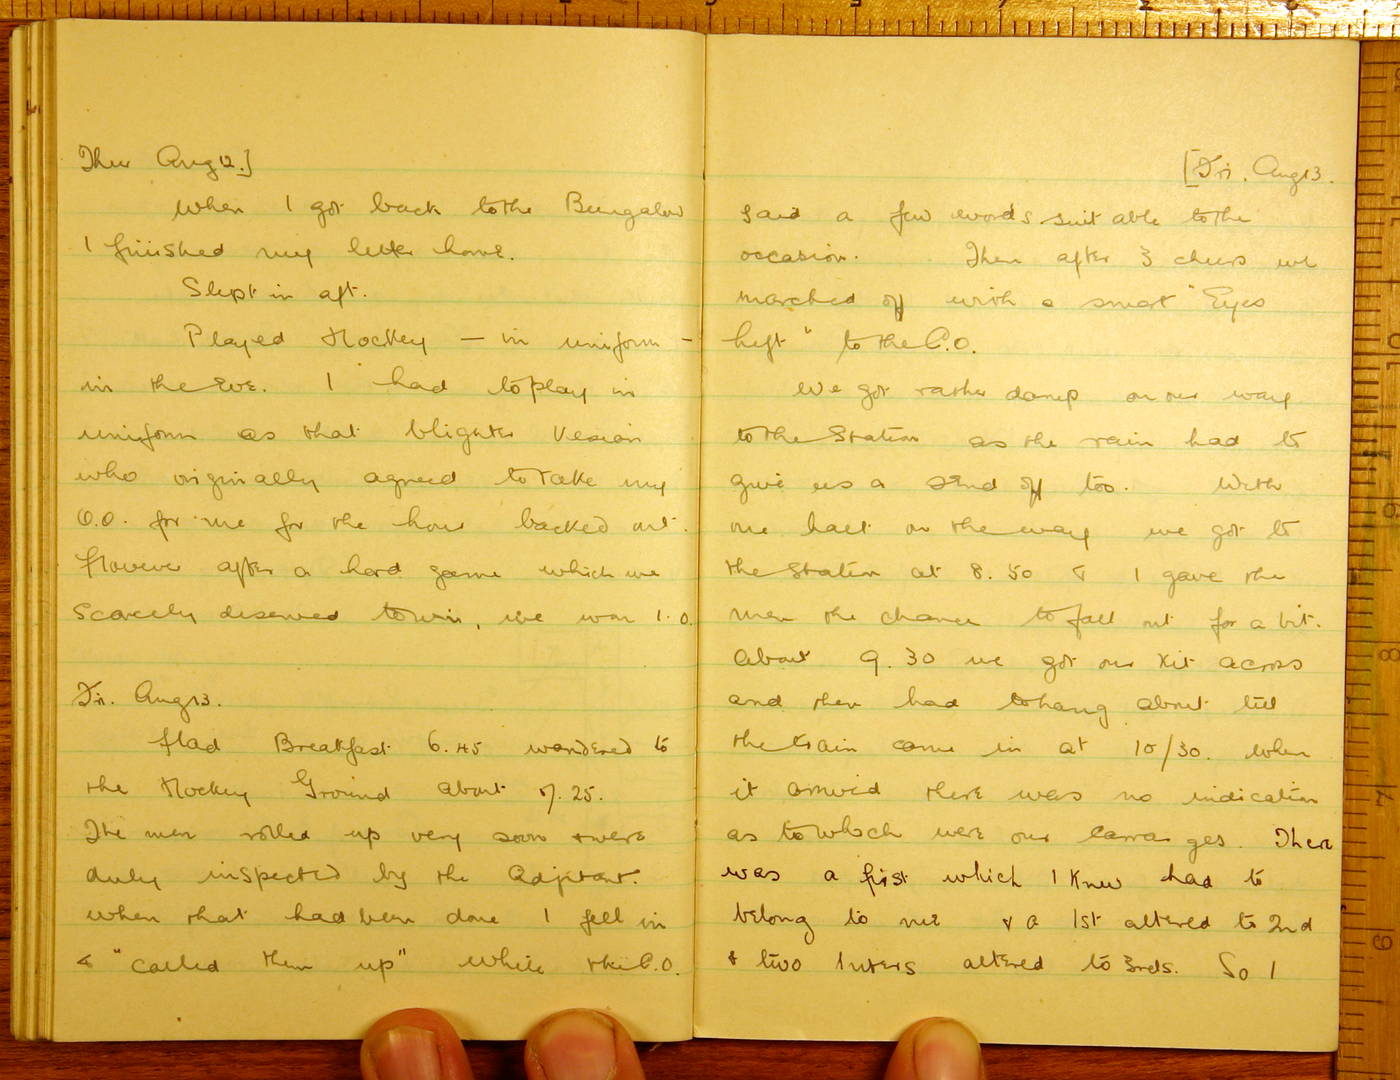 Thur Aug 12.]
When I got back to the Bungalow
I finished my letter home.
Slept in aft.
Played Hockey – in uniform –
in the Eve. I had to play in
uniform as that blighter
who originally agreed to take my
O.O. for me for the hour backed out.
However after a hard game which we
scarcely deserved to win, we won 1.0.
Fri. Aug 13.
Had Breakfast 6.45 wandered to
the Hockey Ground about 7.25.
The men rolled up very soon & were
duly inspected by the Adjutant.
When that had been done I fell in
& "called them up" while the C.O.
[Fri. Aug 13.
said a few words suitable to the
occasion. Then after 3 cheers we
marched off with a smart "Eyes
Left" to the C.O.
We got rather damp on our way
to the Station as the rain had to
give us a send off too. With
one halt on the way we got to
the Station at 8.50 & I gave the
men the chance to fall out for a bit.
About 9.30 we got our kit across
and then had to hang about till
the train came in at 10/30. When
it arrived there was no indication
as to which were our carra ges. There
was a first which I knew had to
belong to me & a 1st altered to 2nd
& two Inters altered to 3rds. So I